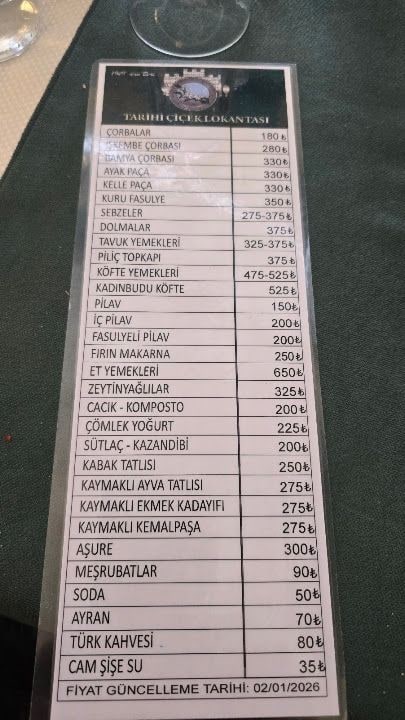 TARİHİ ÇİÇEK LOKANTASI
ÇORBALAR 180₺
İŞKEMBE ÇORBASI 280₺
BAMYA ÇORBASI 330₺
AYAK PAÇA 330₺
KELLE PAÇA 330₺
KURU FASULYE 350₺
SEBZELER 275-375₺
DOLMALAR 375₺
TAVUK YEMEKLERİ 325-375₺
PİLİÇ TOPKAPI 375₺
KÖFTE YEMEKLERİ 475-525₺
KADINBUDU KÖFTE 525₺
PİLAV 150₺
İÇ PİLAV 200₺
FASULYELİ PİLAV 200₺
FIRIN MAKARNA 250₺
ET YEMEKLERİ 650₺
ZEYTİNYAĞLILAR 325₺
CACIK - KOMPOSTO 200₺
ÇÖMLEK YOĞURT 225₺
SÜTLAÇ - KAZANDİBİ 200₺
KABAK TATLISI 250₺
KAYMAKLI AYVA TATLISI 275₺
KAYMAKLI EKMEK KADAYIFI 275₺
KAYMAKLI KEMALPAŞA 275₺
AŞURE 300₺
MEŞRUBATLAR 90₺
SODA 50₺
AYRAN 70₺
TÜRK KAHVESİ 80₺
CAM ŞİŞE SU 35₺
FİYAT GÜNCELLEME TARİHİ: 02/01/2026